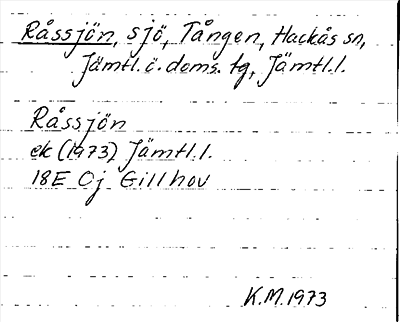 Råssjön, sjö, Tången, Hackås sn,
Jämtl. ö. doms. tg, Jämtl. l.
Råssjön
ek (1973) Jämtl. l.
18E 0j Gillhov
K.M. 1973